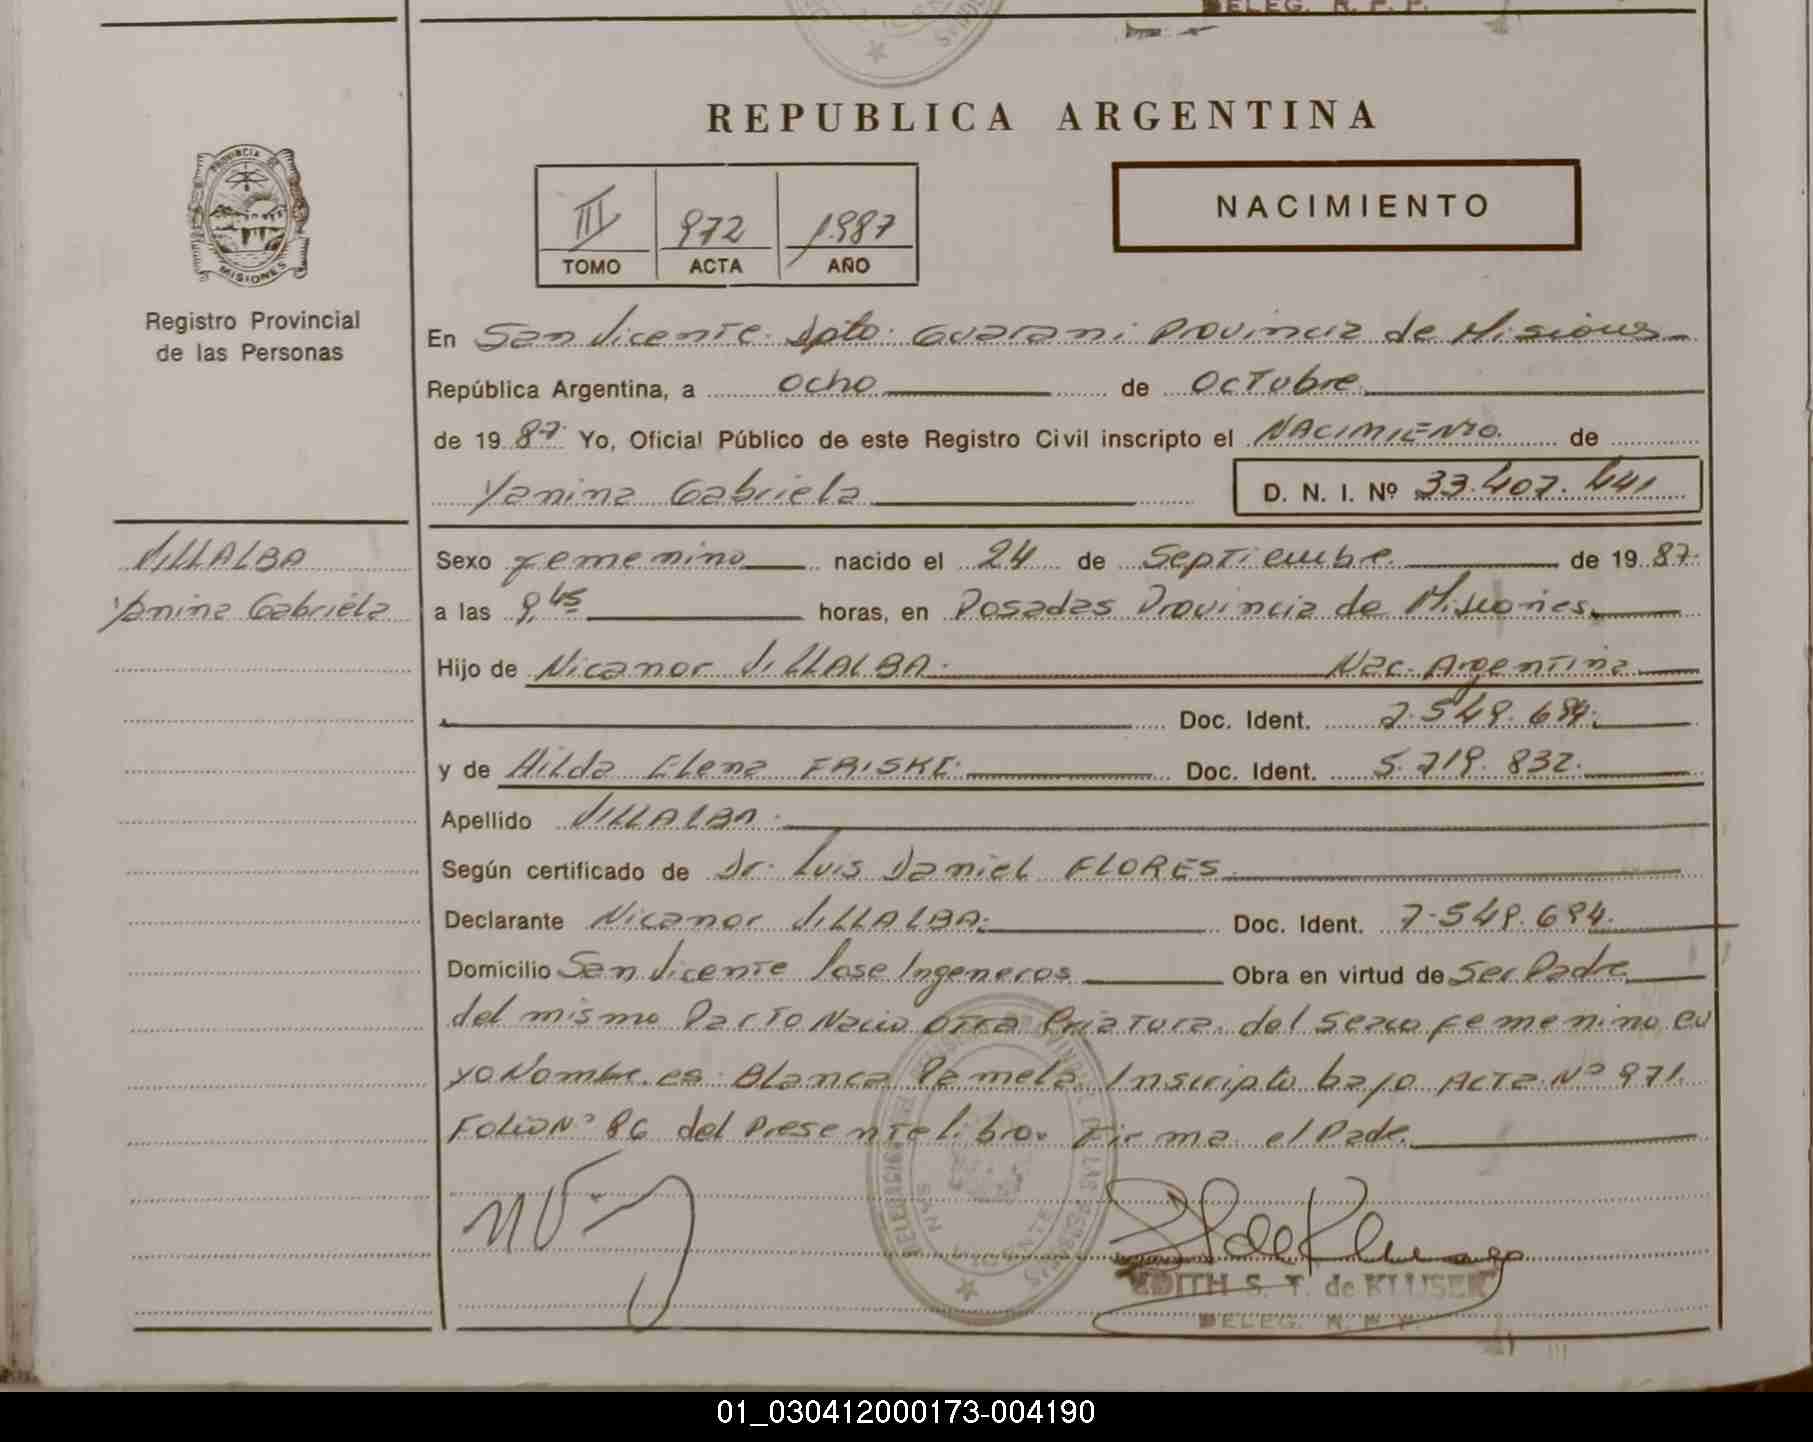 DELEG. R. P. P.
REPUBLICA ARGENTINA
PROVINCIA DE MISIONES
III 972 1987
TOMO ACTA AÑO
NACIMIENTO
Registro Provincial
de las Personas
En San Vicente Dpto. Guarani Provincia de Misiones
República Argentina, a ocho de Octubre
de 1987 Yo, Oficial Público de este Registro Civil inscripto el NACIMIENTO de
Yanina Gabriela D. N. I. Nº 33.407.441
VILLALBA
Yanina Gabriela
Sexo femenino nacido el 24 de Septiembre de 1987
a las 9,45 horas, en Posadas Provincia de Misiones
Hijo de Nicanor VILLALBA Nac. Argentina
Doc. Ident. 7.549.694
y de Hilda Elena FRISKE Doc. Ident. 5.719.832
Apellido VILLALBA
Según certificado de Dr. Luis Daniel FLORES
Declarante Nicanor VILLALBA Doc. Ident. 7.549.694
Domicilio San Vicente Jose Ingeneros Obra en virtud de Ser Padre
del mismo Parto Nacio otra Criatura del sexo femenino cu
yo Nombre es Blanca Pamela Inscripto bajo ACTA Nº 971
Folio Nº 86 del Presente libro. Firma el Padre
EDITH S. T. de KLUSEK
DELEG. R. P. P.
01_030412000173-004190